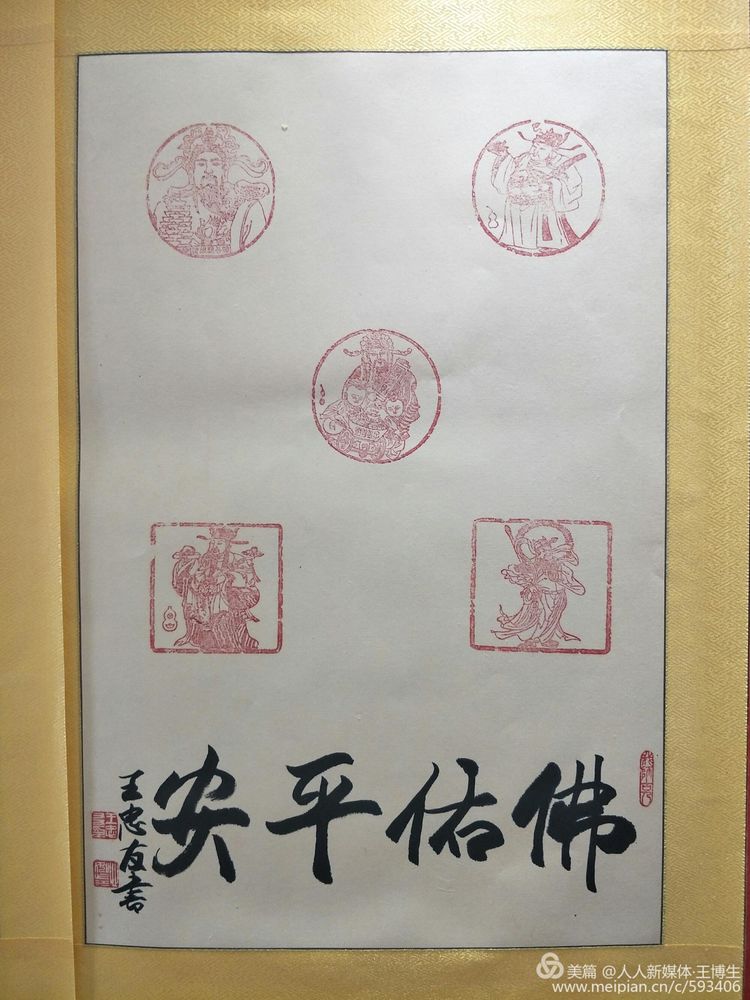 佛佑平安
王忠友书
美篇 @人人新媒体·王博生
www.meipian.cn/c/593406